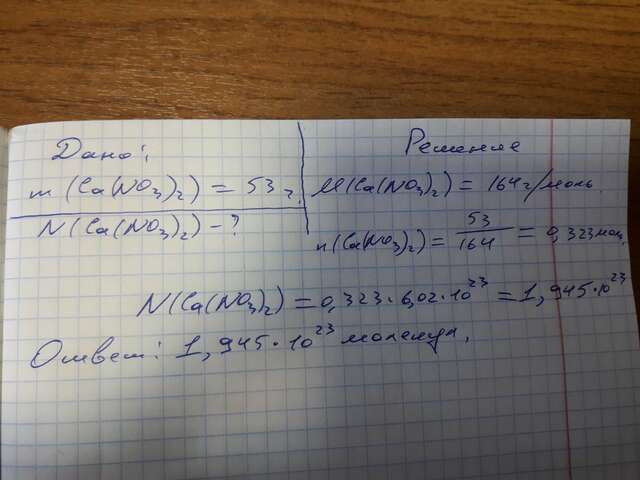 Дано:
m (Ca(NO₃)₂) = 53 г.
N (Ca(NO₃)₂) - ?
Решение
M(Ca(NO₃)₂) = 164 г/моль
n(Ca(NO₃)₂) = 53/164 = 0,323 мол.
N(Ca(NO₃)₂) = 0,323·6,02·10²³ = 1,945·10²³
Ответ: 1,945·10²³ молекул.